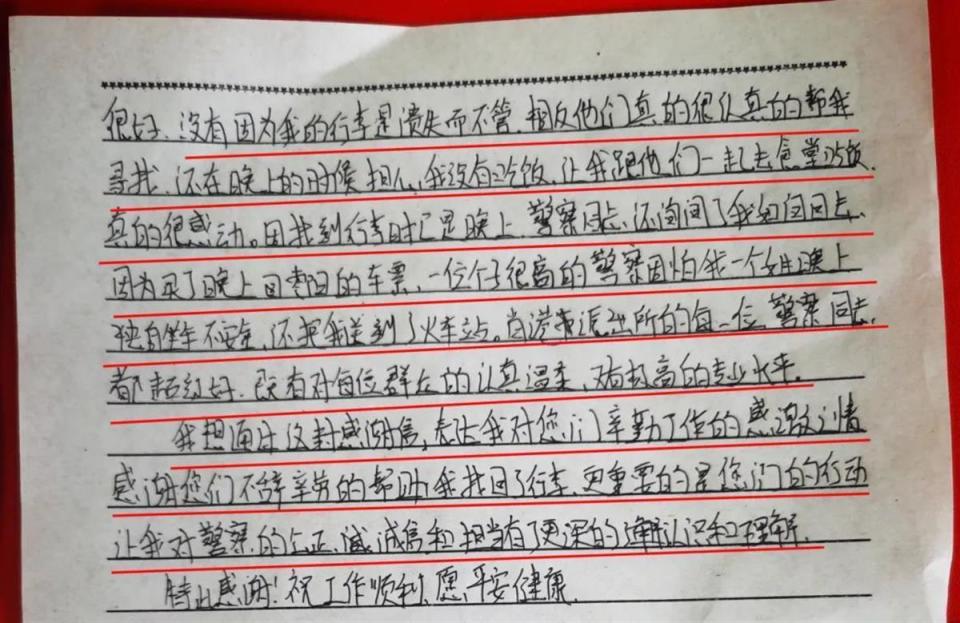 很好,没有因为我的行李是遗失而不管,相反他们真的很认真的帮我
寻找,还在晚上的时候担心我没有吃饭,让我跟他们一起去食堂吃饭,
真的很感动。因找到行李时已是晚上,警察同志还询问了我如何回去,
因为买了晚上回 的车票,一位个子很高的警察因怕我一个女生晚上
独自坐车不安全,还把我送到了火车站。 派出所的每一位警察同志,
都超级好,既有对每位群众的认真温柔, 高的专业水平。
我想通过这封感谢信,表达我对您们辛勤工作的感激之情
感谢您们不辞辛劳的帮助我找回了行李,更重要的是您们的行动
让我对警察的公正、诚信和担当有了更深的 认识和理解。
特此感谢!祝工作顺利,愿平安健康。